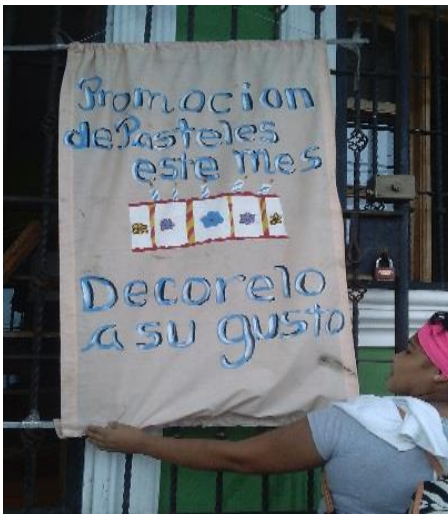 Promocion
de Pasteles
este mes
Decorelo
a su gusto